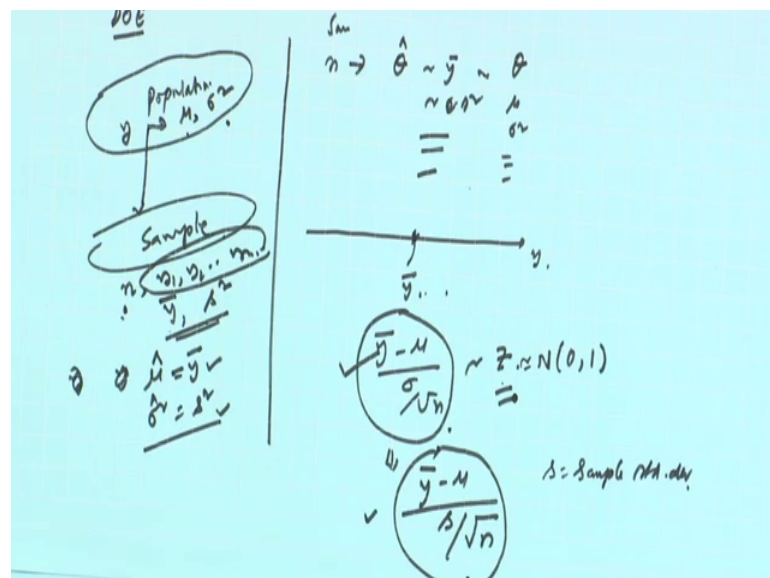 DOE
Population
y → μ, σ²
Sample
n, y₁, y₂ ... yₙ.
ȳ, s²
μ̂ = ȳ ✓
σ̂² = s² ✓
n → θ̂ ~ ȳ ~ θ
~ s² μ
σ²
y.
ȳ...
✓ (ȳ - μ) / (σ/√n) ~ Z ≈ N(0,1)
⇓
✓ (ȳ - μ) / (s/√n)
s = Sample std. dev